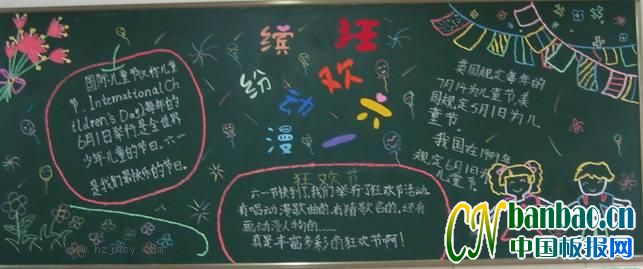 缤纷动漫
狂欢六一
国际儿童节(又称儿童
节, International Ch
ildren's Day)每年的
6月1日举行是全世界
少年儿童的节日。六一
是我们最快乐的节日。
狂欢节
六一节快到了,我们举行了狂欢节活动,
有唱动漫歌曲的,有猜歌名的,还有
画动漫人物的……
真是丰富多彩的狂欢节啊!
英国规定每年的
7月14为儿童节,美
国规定5月1日为儿
童节。
我国在19 年
规定6月1日为
儿童节。
www.hzjmsy.com
CNbanbao.cn
中国板报网